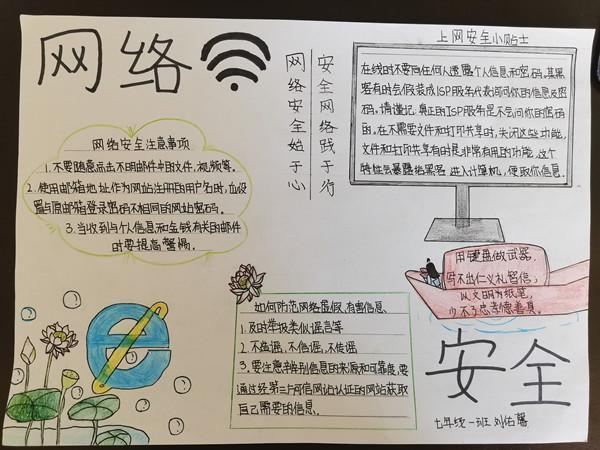 网络
网络安全始于心
安全网络践于行
上网安全小贴士
在线时不要向任何人透露个人信息和密码。某黑
客有时会假装成ISP服务代表询问你的信息及密
码。请谨记:真正的ISP服务是不会问你的密码
的。在不需要文件和打印共享时,关闭这些功能,
文件和打印共享有时是非常有用的功能,这个
特性会暴露给黑客进入计算机,便取你信息。
网络安全注意事项
1.不要随意点击不明邮件中的文件,视频等。
2.使用邮箱地址作为网站注册的用户名时,应设
置与原邮箱登录密码不相同的网站密码。
3.当收到与个人信息和金钱有关的邮件
时要提高警惕。
用键盘做武器,
写不出仁义礼智信;
以文明为纸笔,
少不了忠孝德善真。
如何防范网络虚假、有害信息
1.及时举报类似谣言等
2.不造谣,不信谣,不传谣
3.要注意辨别信息的来源和可靠度,要
通过经第三方可信网站认证的网站获取
自己需要的信息。
安全
七年级一班 刘佑馨